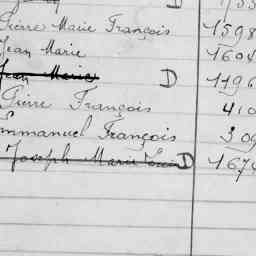 D
Pierre Marie François 1598
Jean Marie 1604
Jean Marie D 1196
Pierre François 410
Emmanuel François 309
Joseph Marie D 1674